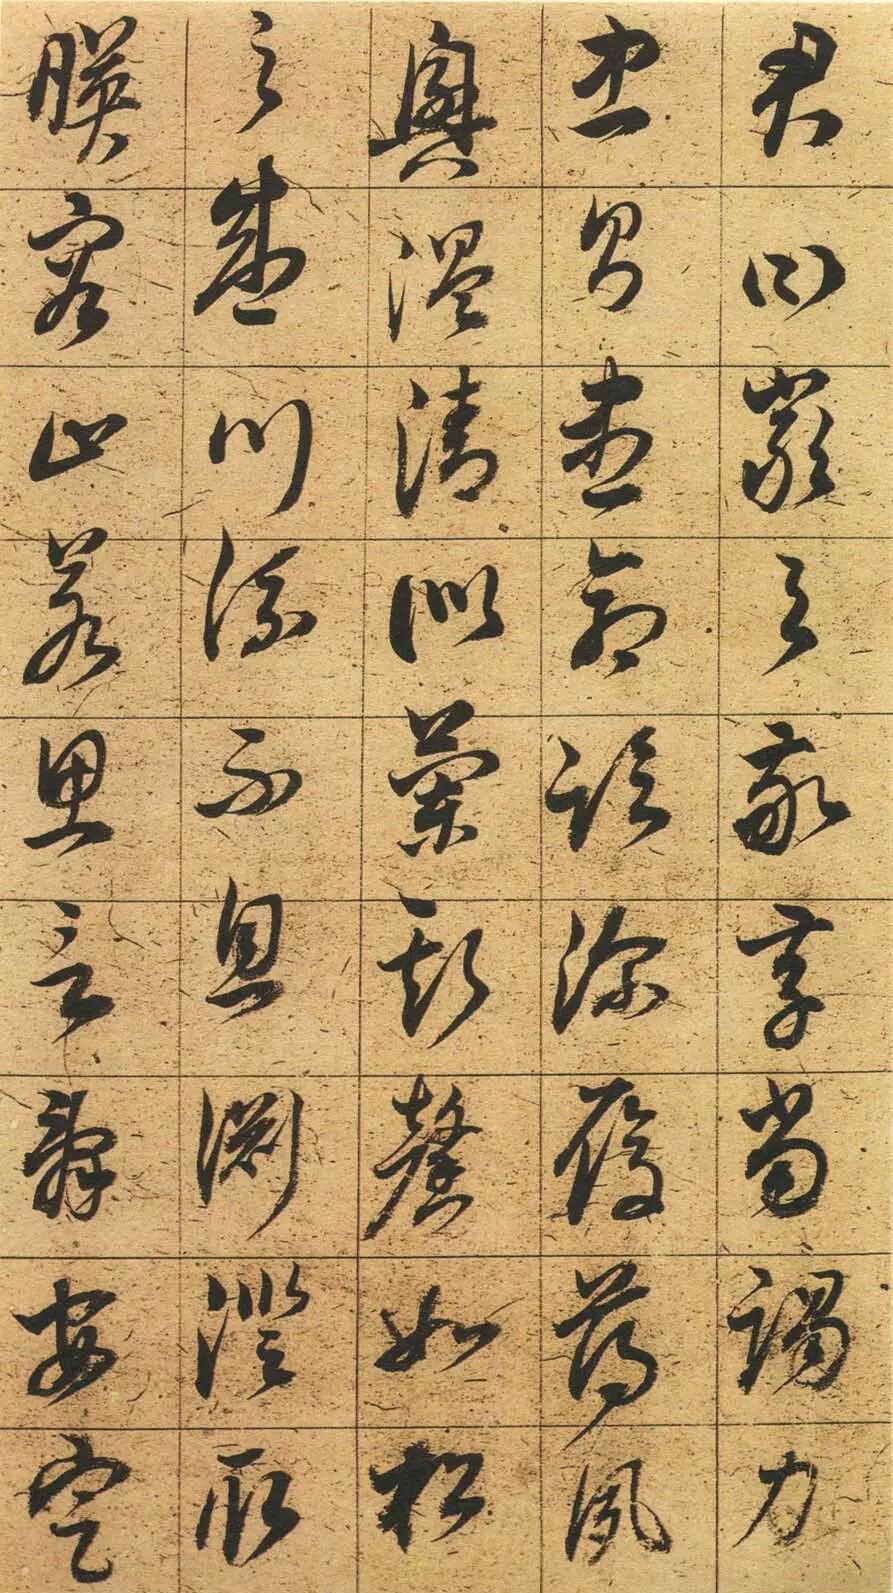 君曰嚴與敬孝當竭力
忠則盡命臨深履薄夙
興溫清似蘭斯馨如松
之盛川流不息淵澄取
暎容止若思言辭安定